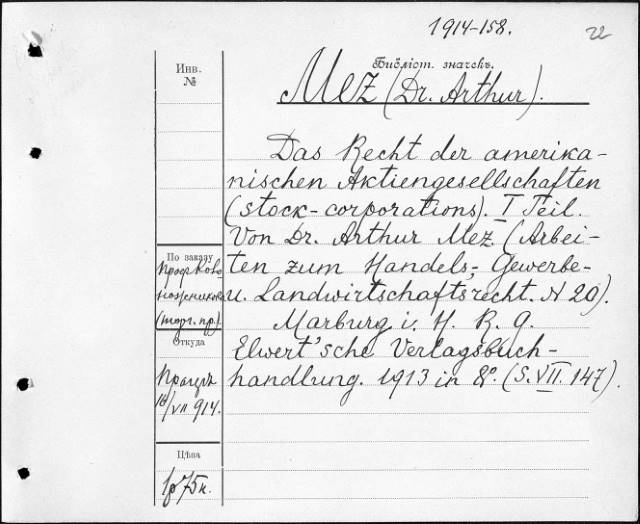 1914-158.
22
Инв.
№
Библіот. значекъ.
Mez (Dr. Arthur).
Das Recht der amerika-
nischen Aktiengesellschaften
(stock-corporations). I Teil.
Von Dr. Arthur Mez. (Arbei-
ten zum Handels-, Gewerbe-
u. Landwirtschaftsrecht. N 20).
Marburg i. H. R. G.
Elwert'sche Verlagsbuch-
handlung. 1913 in 8°. (S. VII. 147).
По заказу
(торг. пр.).
Откуда
/VII 914.
Цѣна
1р 75к.